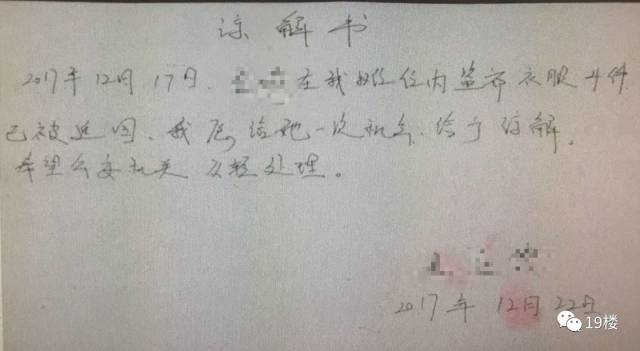 谅解书
2017年12月17日. 在我摊位内盗窃衣服4件
已被追回、我愿给她一次机会.给予谅解.
希望公安机关从轻处理。
2017年12月22日
19楼